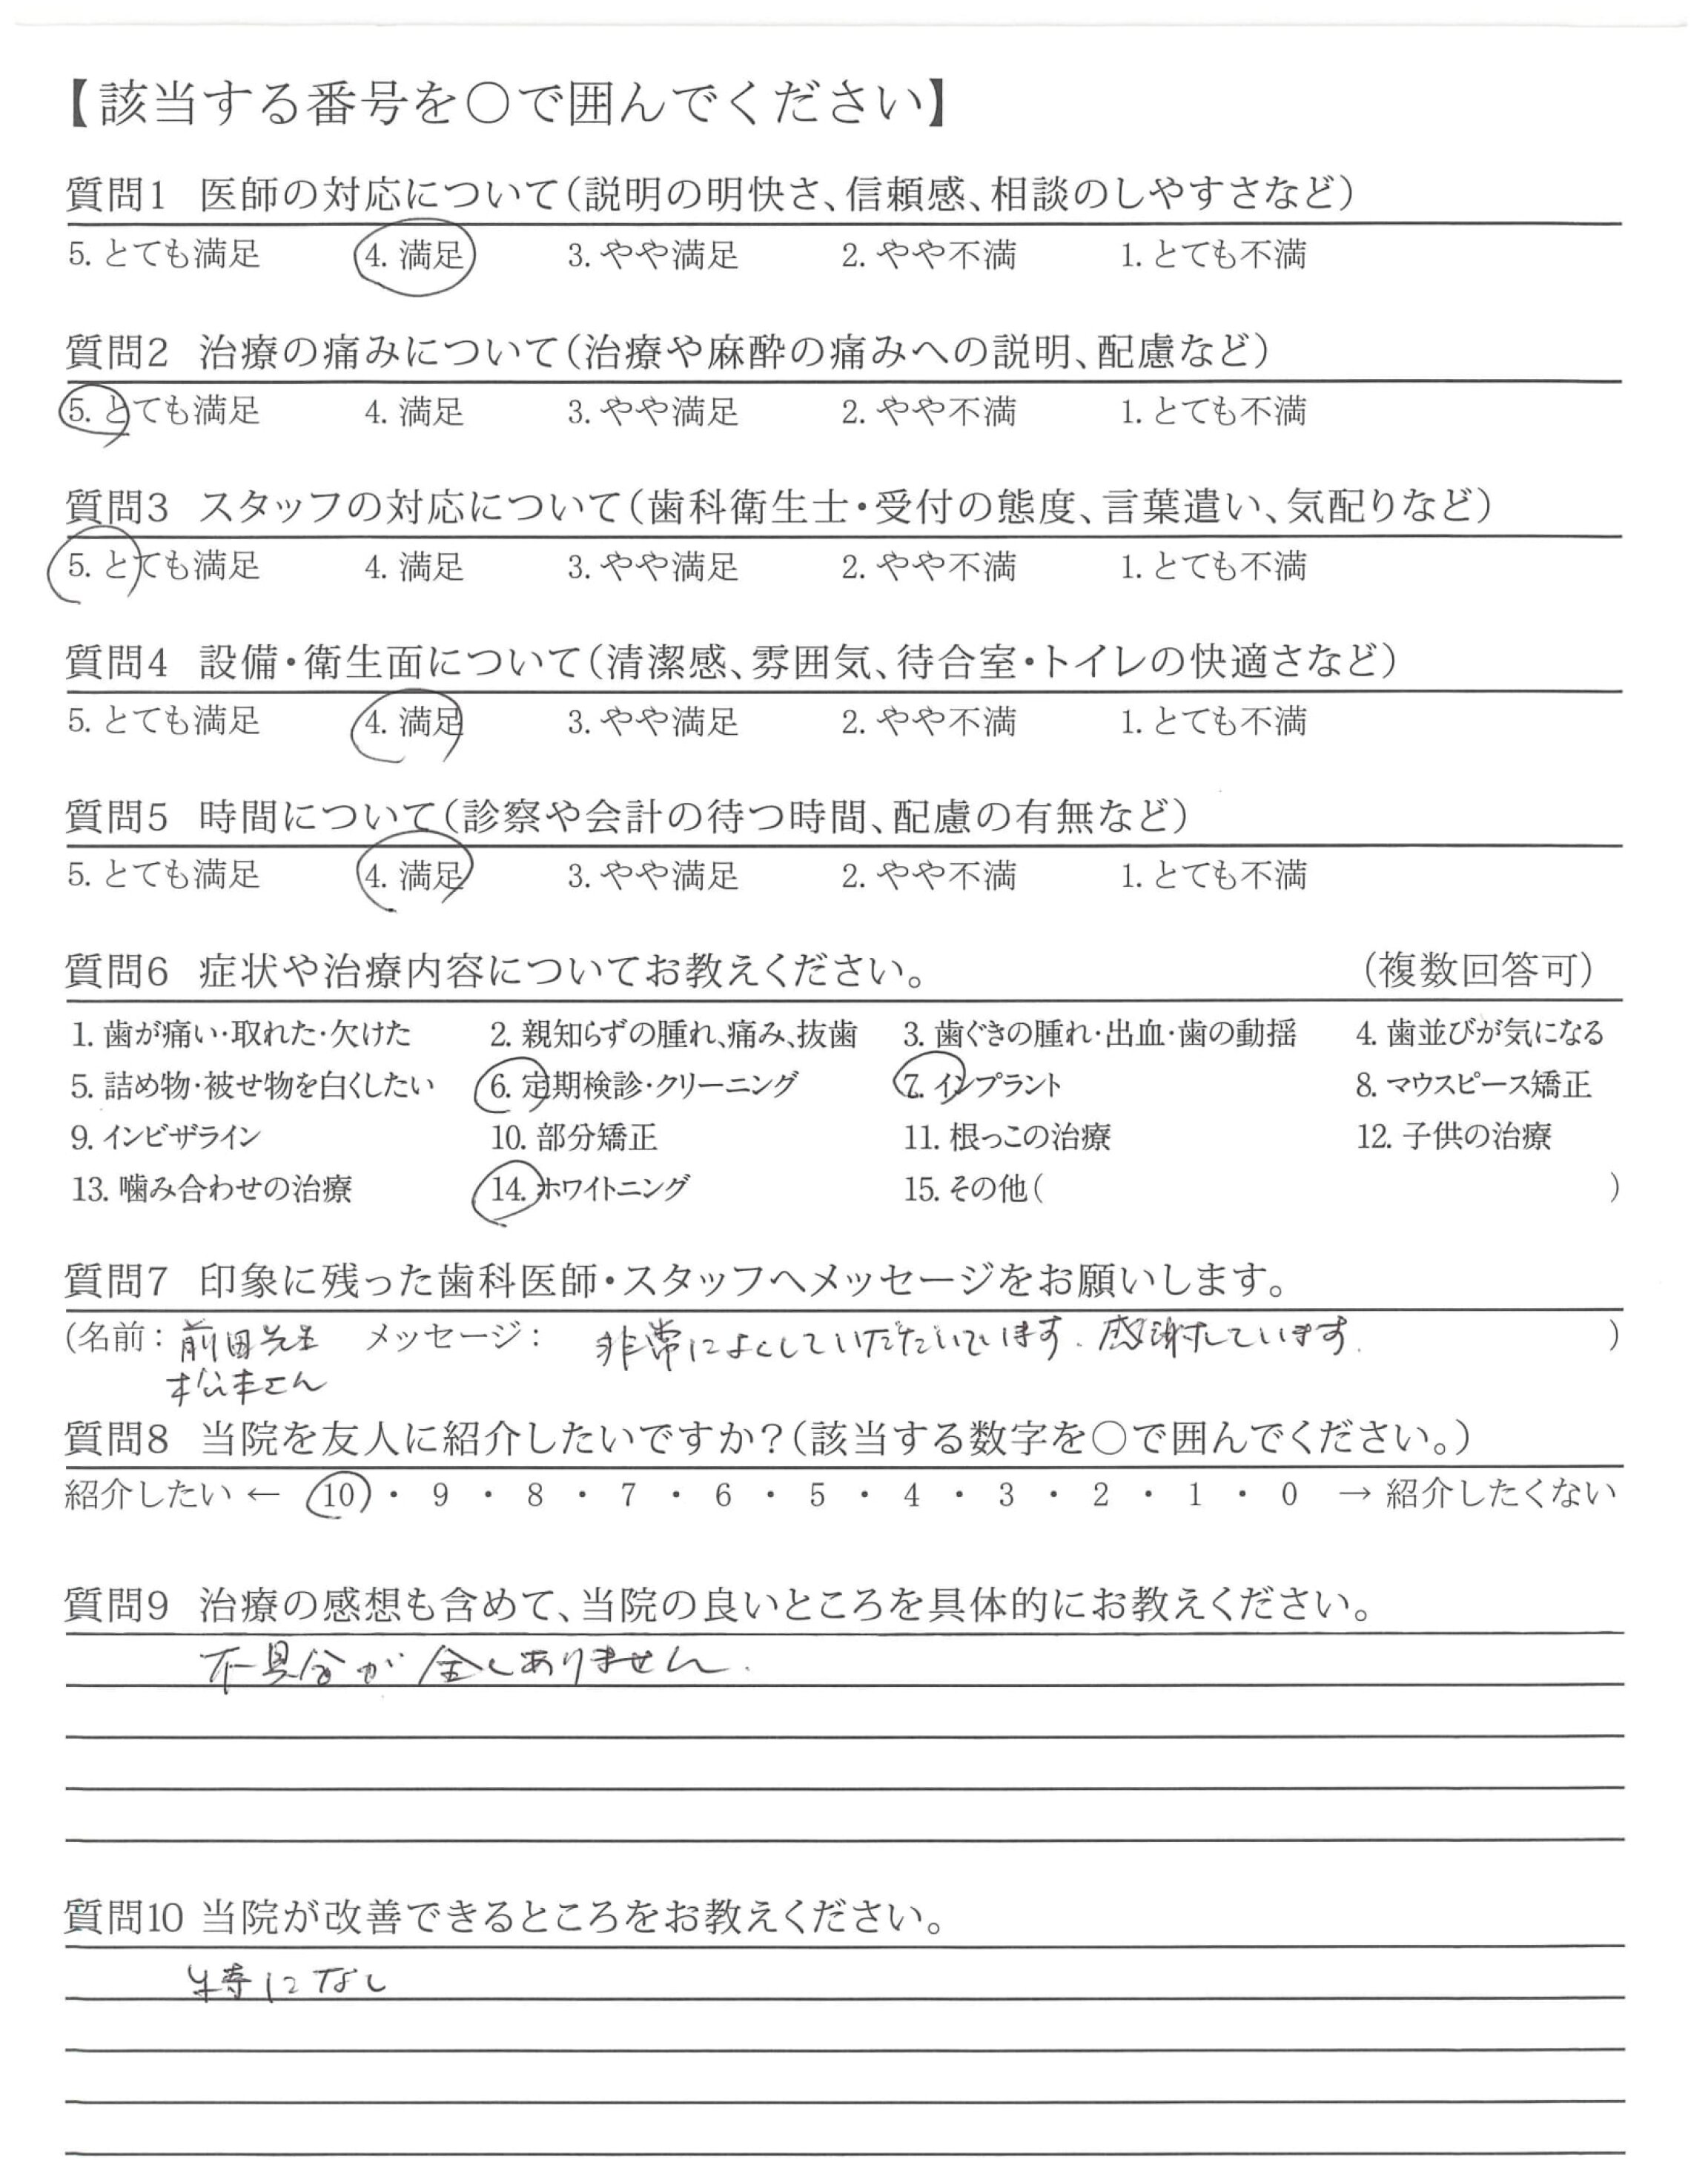 【該当する番号を○で囲んでください】
質問1 医師の対応について(説明の明快さ、信頼感、相談のしやすさなど)
5. とても満足 4. 満足 3. やや満足 2. やや不満 1. とても不満
質問2 治療の痛みについて(治療や麻酔の痛みへの説明、配慮など)
5. とても満足 4. 満足 3. やや満足 2. やや不満 1. とても不満
質問3 スタッフの対応について(歯科衛生士・受付の態度、言葉遣い、気配りなど)
5. とても満足 4. 満足 3. やや満足 2. やや不満 1. とても不満
質問4 設備・衛生面について(清潔感、雰囲気、待合室・トイレの快適さなど)
5. とても満足 4. 満足 3. やや満足 2. やや不満 1. とても不満
質問5 時間について(診察や会計の待つ時間、配慮の有無など)
5. とても満足 4. 満足 3. やや満足 2. やや不満 1. とても不満
質問6 症状や治療内容についてお教えください。 (複数回答可)
1. 歯が痛い・取れた・欠けた 2. 親知らずの腫れ、痛み、抜歯 3. 歯ぐきの腫れ・出血・歯の動揺 4. 歯並びが気になる
5. 詰め物・被せ物を白くしたい 6. 定期検診・クリーニング 7. インプラント 8. マウスピース矯正
9. インビザライン 10. 部分矯正 11. 根っこの治療 12. 子供の治療
13. 噛み合わせの治療 14. ホワイトニング 15. その他( )
質問7 印象に残った歯科医師・スタッフへメッセージをお願いします。
(名前: 前田先生 メッセージ: 非常によくしていただいています. 感謝しています. )
松本さん
質問8 当院を友人に紹介したいですか?(該当する数字を○で囲んでください。)
紹介したい ← 10 ・ 9 ・ 8 ・ 7 ・ 6 ・ 5 ・ 4 ・ 3 ・ 2 ・ 1 ・ 0 → 紹介したくない
質問9 治療の感想も含めて、当院の良いところを具体的にお教えください。
不具合が全くありません.
質問10 当院が改善できるところをお教えください。
特になし